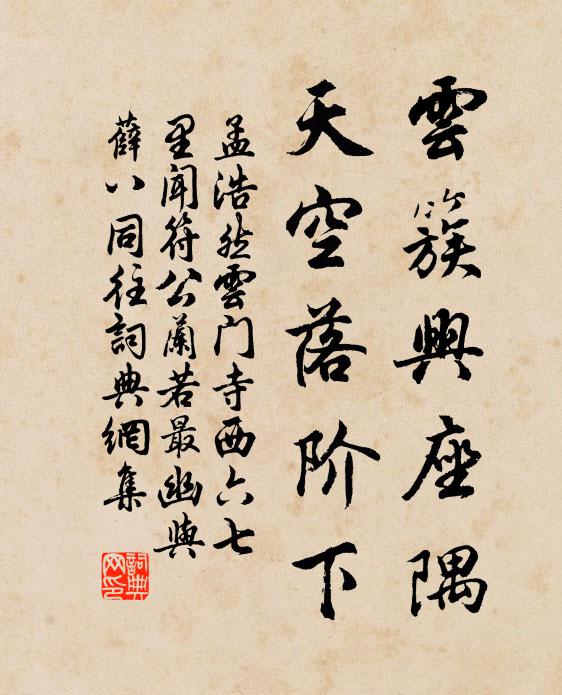 雲簇興座隅
天空落阶下
孟浩然雲门寺西六七
里闻符公蘭若最幽與
薛八同往詞典網集
詞典
网印